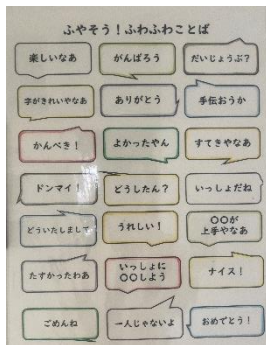 ふやそう！ふわふわことば
楽しいなあ
がんばろう
だいじょうぶ？
字がきれいやなあ
ありがとう
手伝おうか
かんぺき！
よかったやん
すてきやなあ
ドンマイ！
どうしたん？
いっしょだね
どういたしまして
うれしい！
○○が
上手やなあ
たすかったわあ
いっしょに
○○しよう
ナイス！
ごめんね
一人じゃないよ
おめでとう！